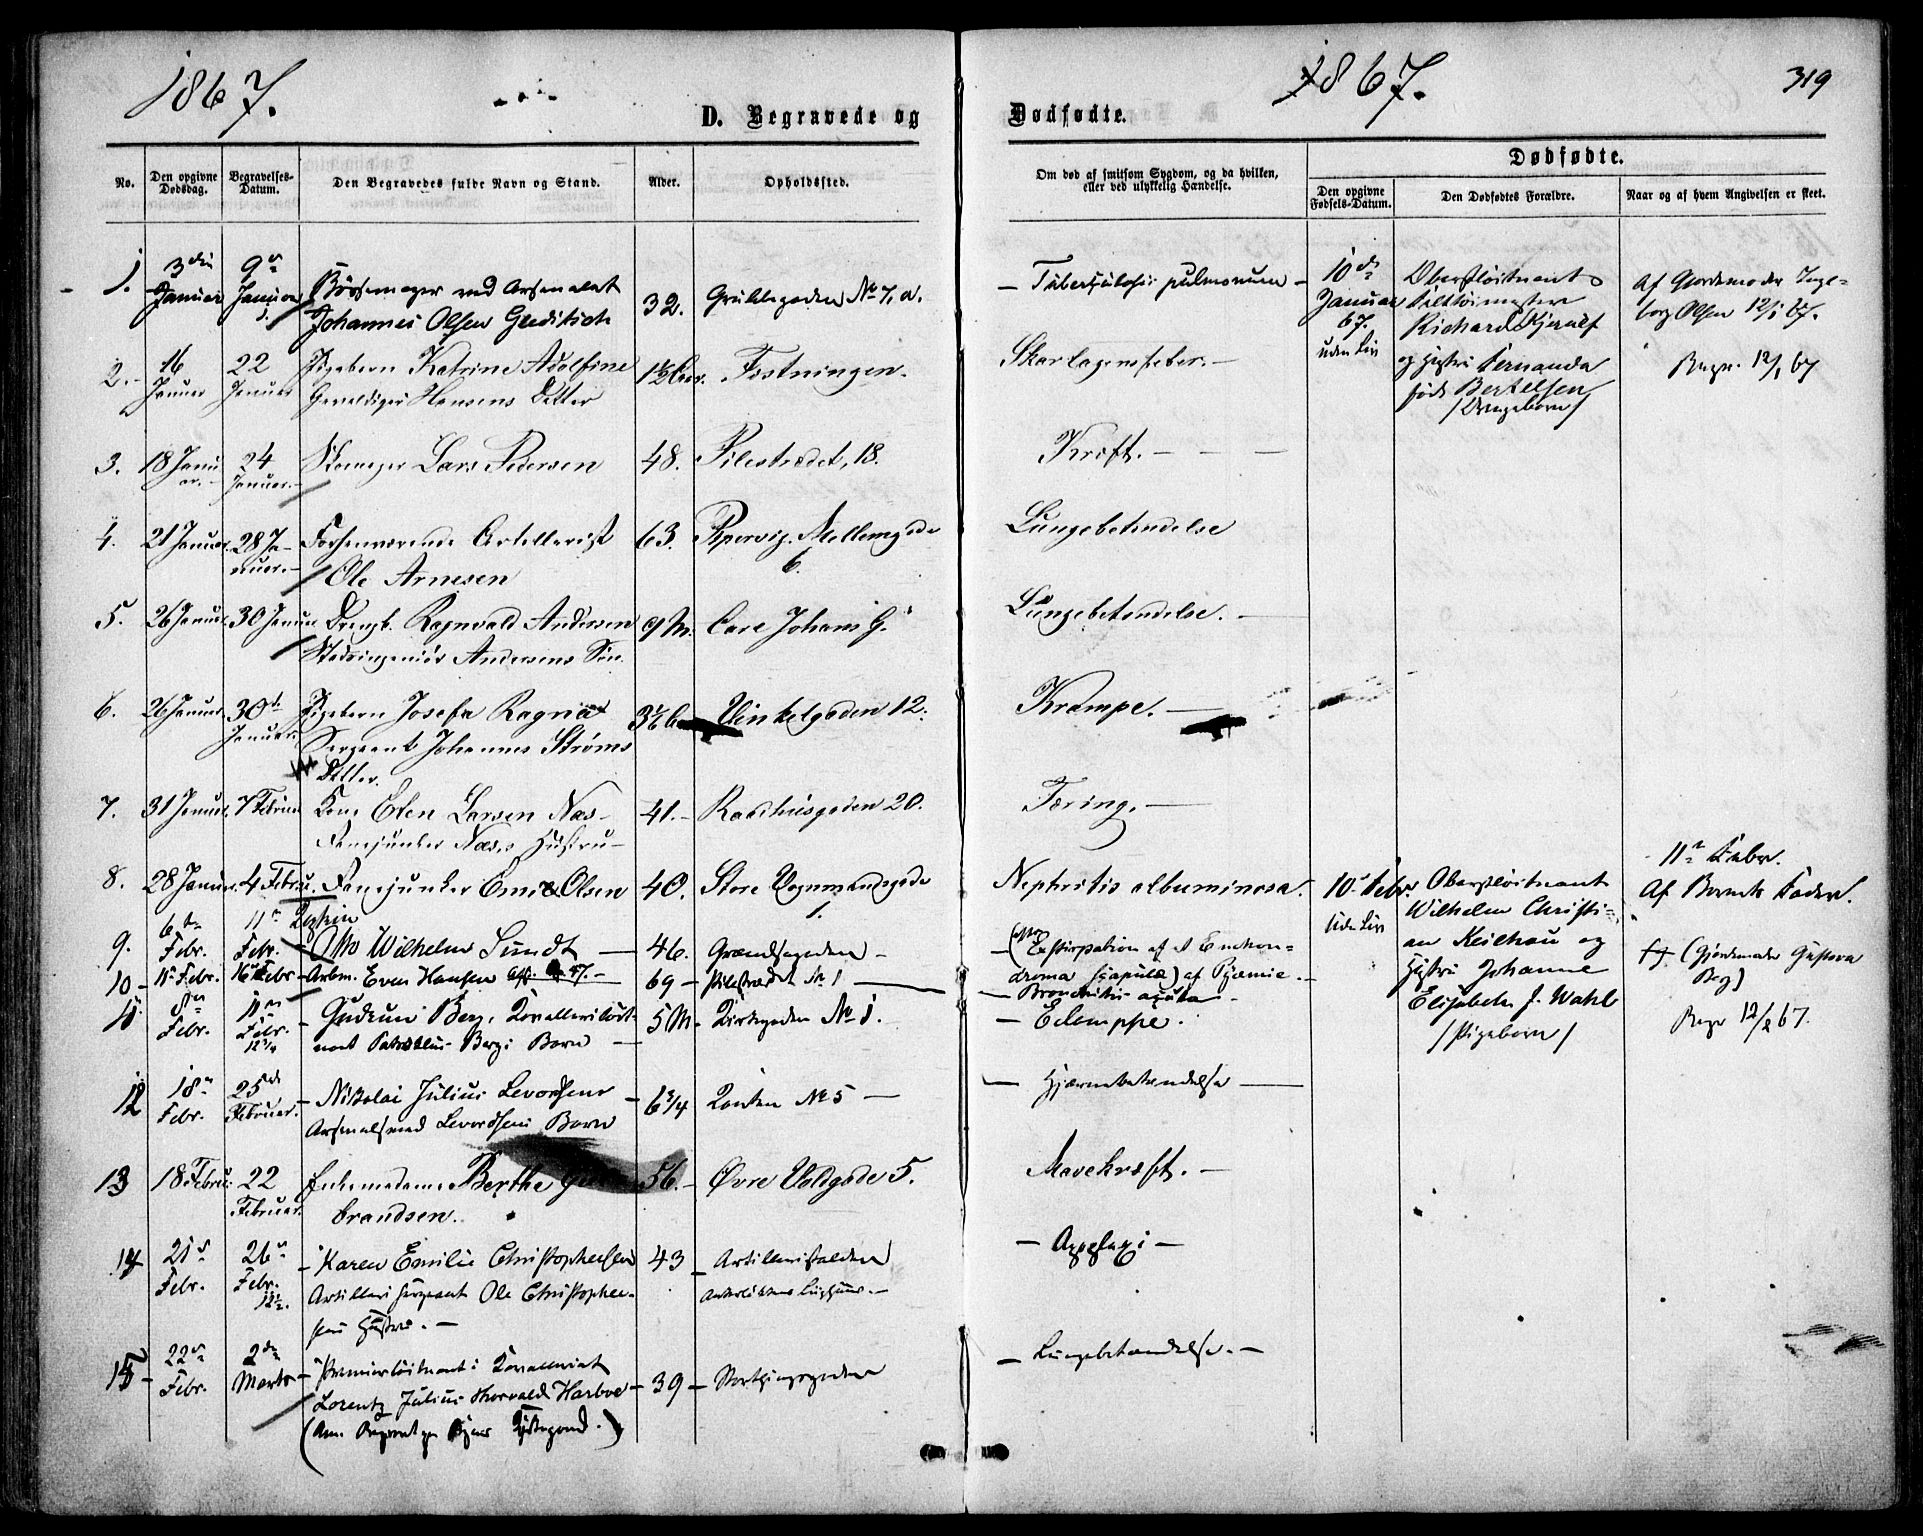 1867.
1867.
319
D. Begravede og
Dødfødte.
No.
Den opgivne Dødsdag.
Begravelses-Datum.
Den Begravedes fulde Navn og Stand.
Alder.
Opholdssted.
Om død af smitsom Sygdom, og da hvilken, eller ved ulykkelig Hændelse.
Dødfødte.
Den opgivne Fødsels-Datum.
Den Dødfødtes Forældre.
Naar og af hvem Angivelsen er skeet.
1. 3die Januar 9de Januar Bøssemager ved Arsenalet
Johannes Olsen 32. Grubbegaden No 7, a. Tuberculosis pulmonum
10de Januar 67. uden Liv
Oberstløitnant
Richard
og Hustru Fernanda
født Bertelsen
/Drengebarn/
Af Gjordemoder Inge-
borg Olsen 12/1 67.
Begr. 12/1 67
2. 16 Januar 22 Januar Pigebarn Katrine Adolfine
Gevaldiger Hansens Datter 1½ Aar. Fæstningen. Skarlagensfeber.
3. 18 Januar. 24 Januar. Skomager Lars Pedersen 48. Pilestrædet, 18. Kræft.
4. 21 Januar. 28 Januar. Forhenværende Artillerist
Ole Arnesen 63. Pipervig. Mellemgade
6. Lungebetændelse
5. 26 Januar. 30 Januar Drengb. Ragnvald Andersen
Stadsingeniør Andersens Søn. 9 M. Carl Johans G. Lungebetændelse.
6. 26 Januar. 30te Januar. Pigebarn Josefa Ragna
Sergeant Johannes Strøms
Datter. 3½ Vinkelgaden 12. Krampe.
7. 31 Januar. 7 Februar Kone Larsen Næs
Fanejunker Næss Hustru 41. Raadhusgaden 20. Tæring.
8. 28 Januar. 4 Februar. Fanejunker Olsen 40. Store Vognmandsgade
1. Nephritis albuminosa.
10de Febr. Uden Liv
Oberstløitnant
Wilhelm Christi-
an Keilhau og
Hustru Johanne
Elisabeth f. Wahl
/Pigebarn/
11te Febr.
Af Barnets Fader.
(Gjordemoder Gustava
Berg)
Begr 12/2 67.
9. 6te Febr. 11te Febr. Otto Wilhelm Sundt 46. Grændsegaden (efter
Exstirpation af et Enchon-
droma scapulæ) af Pyæmie.
10 11te Febr. 16de Febr Arbm. Even Hansen 69 Pilestrædet No 1 Bronchitis acuta
11. 8de Febr. 11te Febr. 12 3/4 Gudrun Berg, Kavalleriløit-
nant Bergs Barn 5 M. Kirkegaden No 1. Eclampsie.
12 18de Febr. 25de Februar. Nikolai Julius Levordsen
Arsenalsmed Levordsens Barn 6 3/4 Toldb No 5 Hjernebetændelse
13 18 Februar. 22 Februar. Enkemadame Berthe Gul-
brandsen. 56. Øvre Voldgade 5. Mavekræft.
14 21de Febr. 26de Febr. 12½. Karen Emilie Christophersen
Artillerisergeant Ole Christopher-
sens Hustru. 43 Apoplexi
15 22de Febr. 2den Marts Premierløitnant i Kavalleriet
Lorentz Julius Thorvald Harboe 39 Storthingsgaden Lungebetændelse.